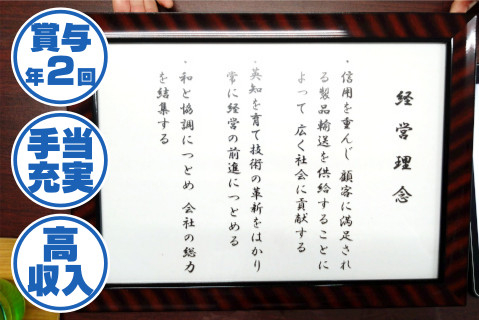 賞与
年2回
手当
充実
高
収入
経営理念
・信用を重んじ 顧客に満足され
る製品輸送を供給することに
よって 広く社会に貢献する
・英知を育て技術の革新をはかり
常に経営の前進につとめる
・和と協調につとめ 会社の総力
を結集する